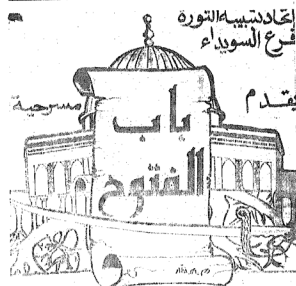 اتحاد شبيبة الثورة
فرع السويداء
يقدم
مسرحية
باب
الفتوح